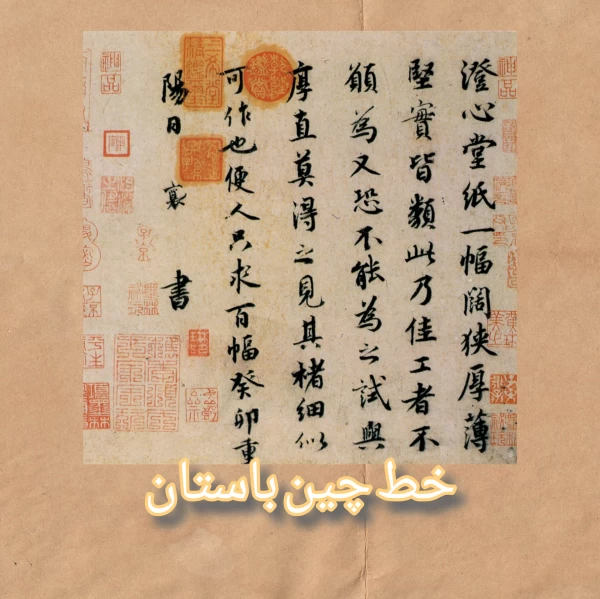 澄心堂紙一幅闊狹厚薄
堅實皆類此乃佳工者不
願為又恐不能為之試與
厚直莫得之見其楮細似
可作也便人只求百幅癸卯重
陽日 襄 書
خط چین باستان